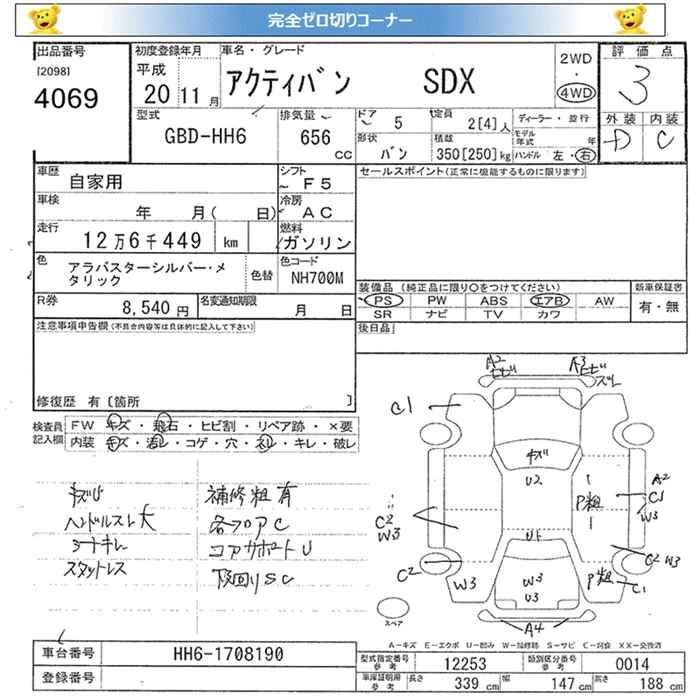 完全ゼロ切りコーナー
出品番号
[2098]
4069
初度登録年月
平成
20 11 月
車名・グレード
アクティバン SDX
2WD
・
4WD
評価点
3
外装 内装
D C
型式
GBD-HH6
排気量
656
cc
ドア
5
定員
2[4]人
ディーラー・並行
モデル年式 年
形状
バン
積載
350[250]kg
ハンドル 左・右
車歴
自家用
シフト
F5
セールスポイント(正常に機能するものに限ります)
車検
年 月( 日)
冷房
AC
走行
12万6千449 km
燃料
ガソリン
色
アラバスターシルバー・メタリック
色替
色コード
NH700M
装備品(純正品に限り○をつけてください)
PS PW ABS エアB AW
SR ナビ TV カワ
新車保証書
有・無
R券
8,540 円
名変通知期限
月 日
後日品
注意事項申告欄(不具合内容等は具体的に記入して下さい)
修復歴 有〔箇所 〕
検査員記入欄
FW キズ・飛石・ヒビ割・リペア跡・×要
内装 キズ・汚レ・コゲ・穴・スレ・キレ・破レ
キズU 補修粗有
ハンドルスレ大 各フロアC
シートキレ コアサポートU
スタットレス 下回りSC
A2
ヒビ
A3
ヒビ
ズレ
C1
キズ
U2
P粗
A2
C1
W3
C2
W3
U1
C2 W3
C2
W3
W3
U3
P粗
C1
スペア
A4
A-キズ E-エクボ U-凹み W-補修跡 S-サビ C-腐食 XX-交換済
車台番号
HH6-1708190
登録番号
型式指定番号
参考
12253
類別区分番号
参考
0014
車庫証明用
参考
長さ 339 cm
幅 147 cm
高さ 188 cm